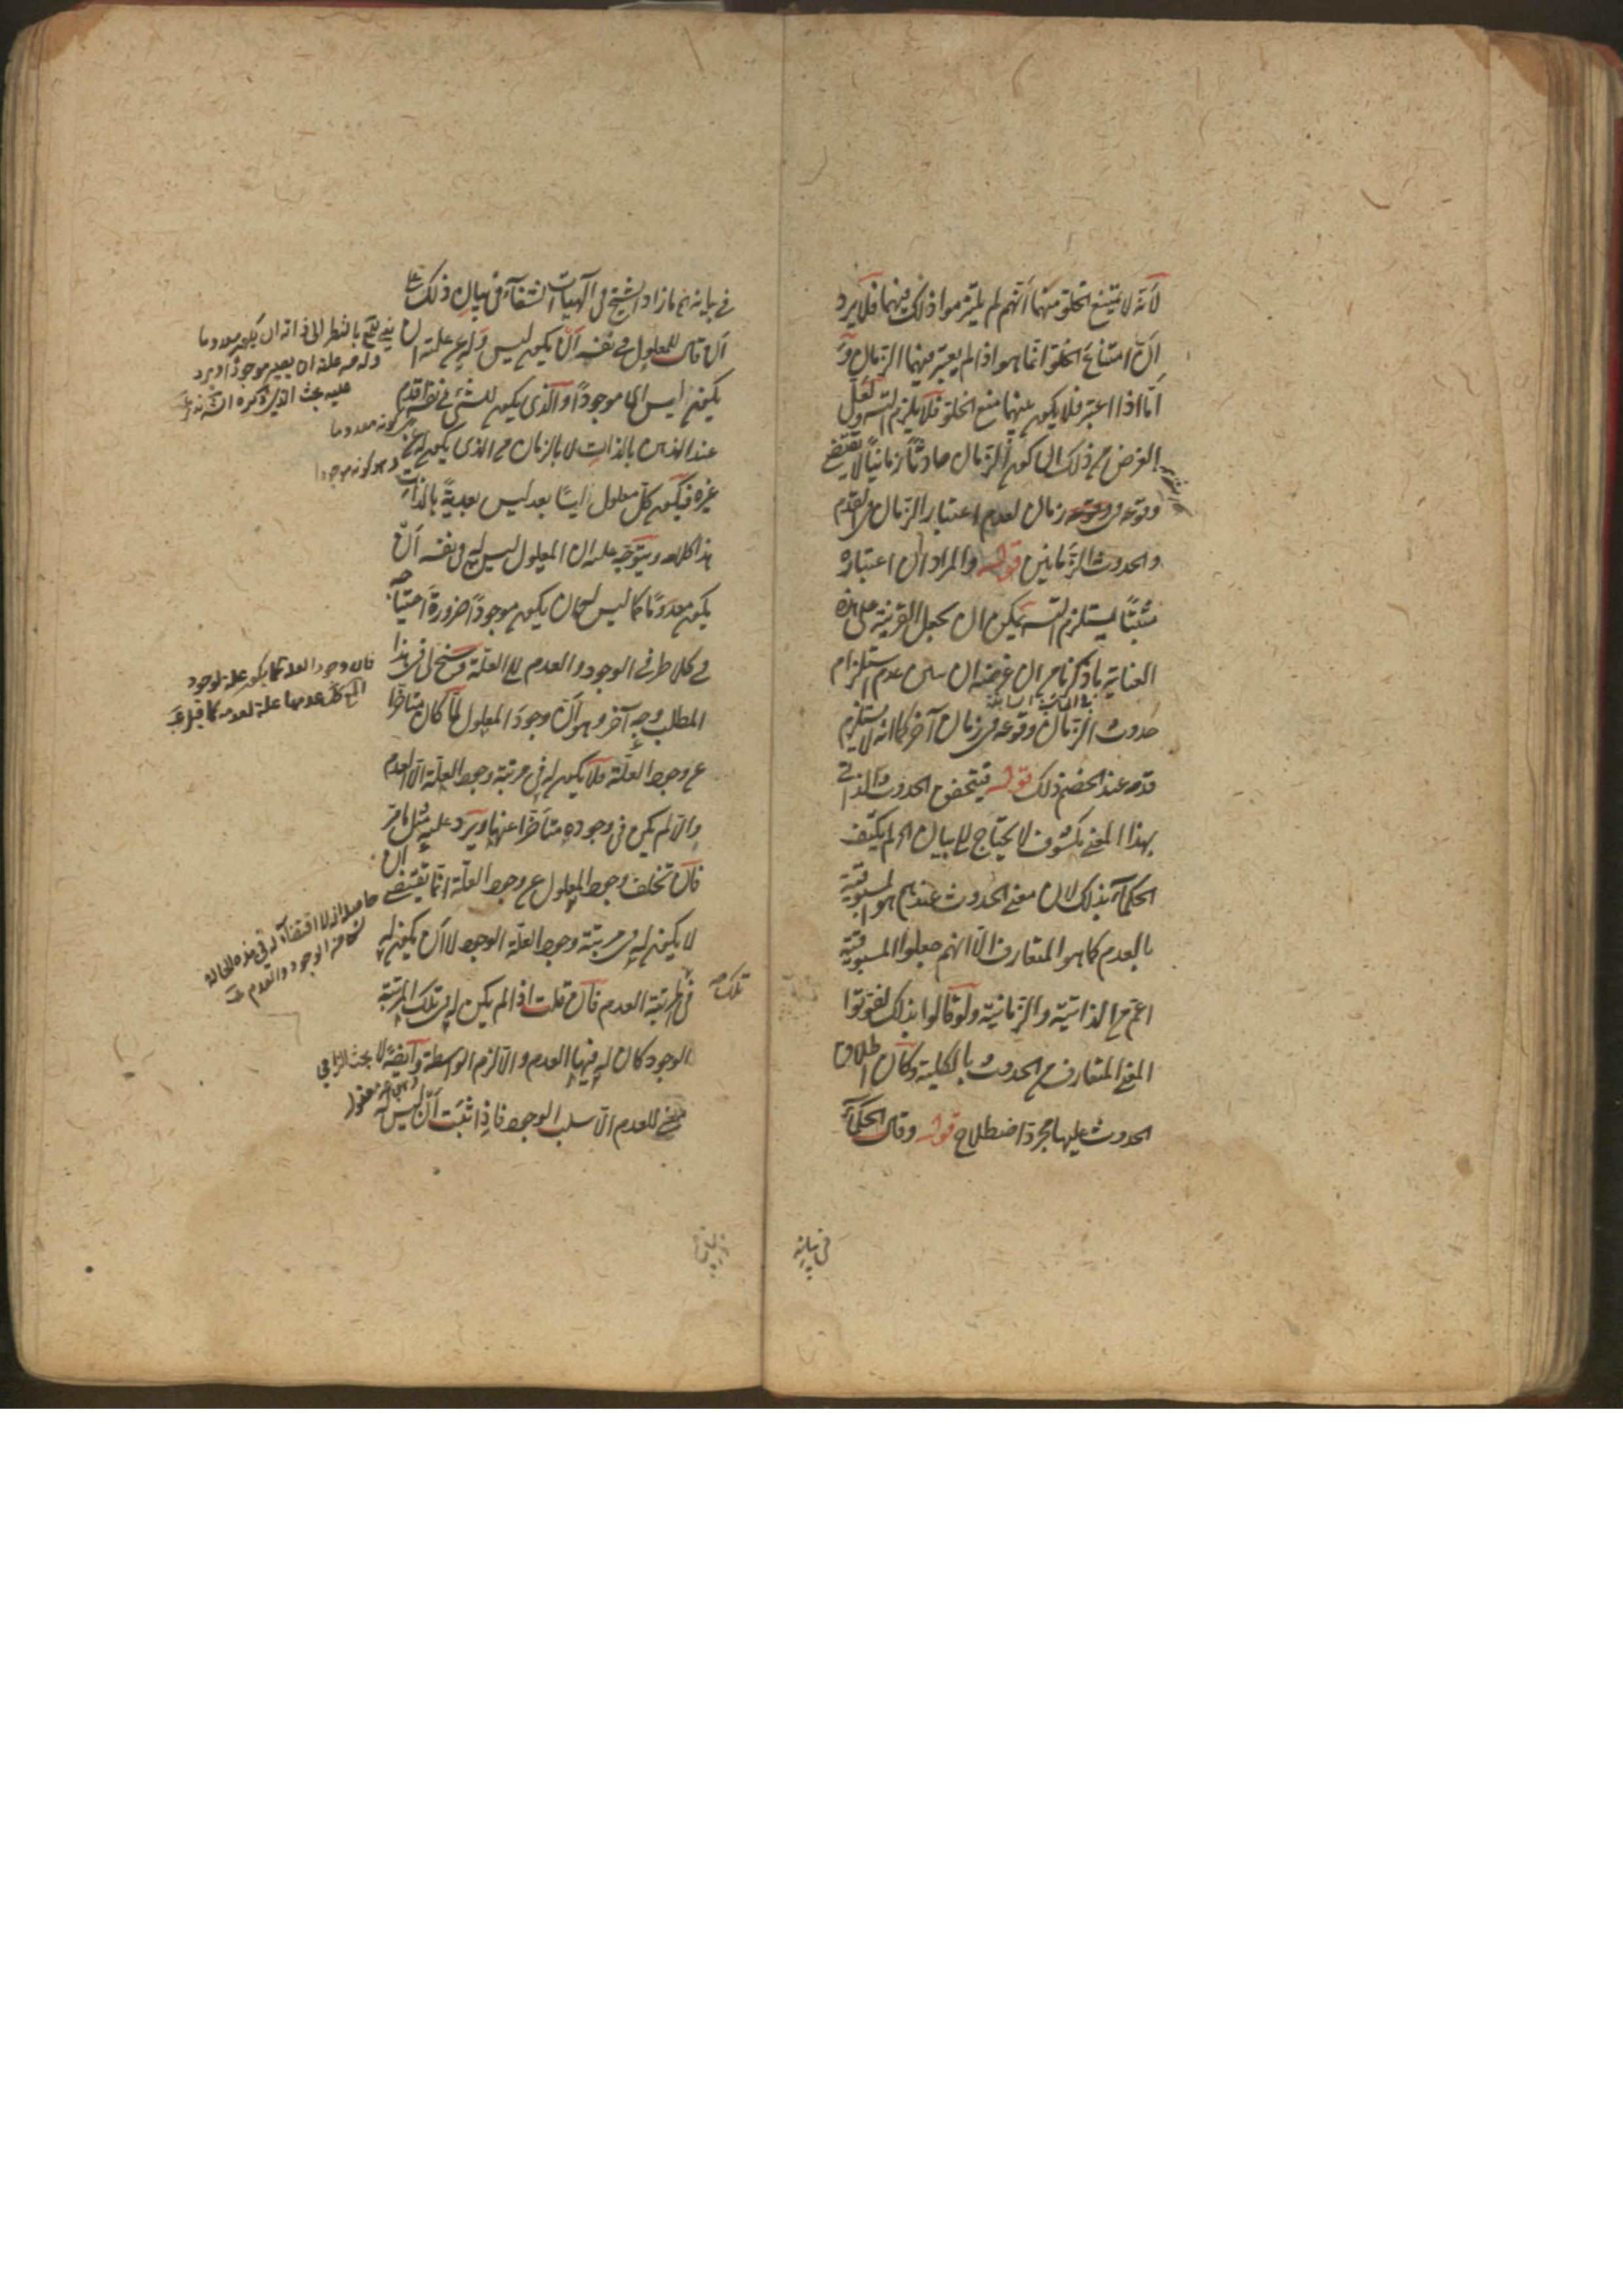 لانه لا يمتنع الخلو منهما انهم لم يلتزموا ذلك فيهما فلا يرد
ان امتناع الخلو انما هو اذا لم يعتبر فيهما الزمان و
اما اذا اعتبر فلا يكون بينهما منع الخلو فلا يلزم التسلسل ولعل
الغرض من ذلك ان كون الزمان حادثا زمانيا لا يقتضي
وقوعه في زمان لعدم اعتبار الزمان في القدم
والحدوث الزمانيين قوله والمراد ان اعتباره
مثبتا يستلزم التسلسل يمكن ان يجعل القرينة على هذه
العناية ما ذكرنا من ان غرضه ان عدم استلزام
في الحاشية السابقة
حدوث الزمان وقوعه في زمان آخر كما انه لا يستلزم
قدمه عند الخصم ذلك قوله فيتحقق الحدوث الذاتي
بهذا المعنى مكشوف لا يحتاج الى بيان لم يكتف
الحكماء بذلك لان معنى الحدوث عندهم هو المسبوقية
بالعدم كما هو المتعارف الا انهم جعلوا المسبوقية
اعم من الذاتية والزمانية ولو قالوا بذلك لفوتوا
المعنى المتعارف من الحدوث بالكلية وكان اطلاق
الحدوث عليها مجرد اصطلاح قوله وقال الحكماء
في بيانه
في بيانه ما زاد الشيخ في الهيات الشفاء في بيان ذلك على
ان قال للمعلول في نفسه ان يكون ليس وله عن علته ان
يكون ايس اي موجودا والذي يكون للشيء في نفسه اقدم
عند الذهن بالذات لا بالزمان من الذي يكون له عن
غيره فيكون كل معلول ايسا بعد ليس بعدية بالذات
هذا كلامه ويتوجه عليه ان المعلول ليس له في نفسه ان
يكون معدوما كما ليس له ان يكون موجودا ضرورة احتياجه
في كلا طرفي الوجود والعدم الى العلة وسنح لي في هذا
المطلب وجه آخر وهو ان وجود المعلول لما كان متاخرا
عن وجود العلة فلا يكون له في مرتبة وجود العلة الا العدم
والا لم يكن في وجوده متاخرا عنها ويرد عليه مثل ما مر
فان تخلف وجود المعلول عن وجود العلة انما يقتضي ان
لا يكون له في مرتبة وجود العلة الوجود لا ان يكون له
في مرتبة العدم فان قلت اذا لم يكن له في تلك المرتبة
تلك صح
الوجود كان له فيها العدم والا لزم الواسطة وايضا لا
معنى للعدم الا سلب الوجود فاذا ثبت ان ليس له
يعني يقع بالنظر الى ذاته ان يكون معدوما
وله من علته ان يصير موجودا ويرد
عليه بحث الذي ذكره
كونه معدوما
وهو كونه موجودا
فان وجود العلة كما يكون علة لوجود
عدمها علة لعدمه كما قيل
حاصله ان لا اقتضاء له في هذه الحالة
الوجود والعدم